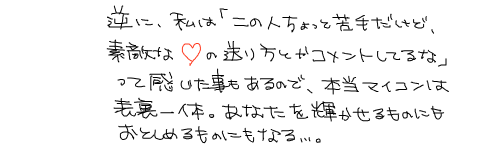 逆に、私は「この人ちょっと苦手だけど、
素敵な♡の送り方とかコメントしてるな」
って感じた事もあるので、本当マイコンは
表裏一体。あなたを輝かせるものにも
おとしめるものにもなる…。